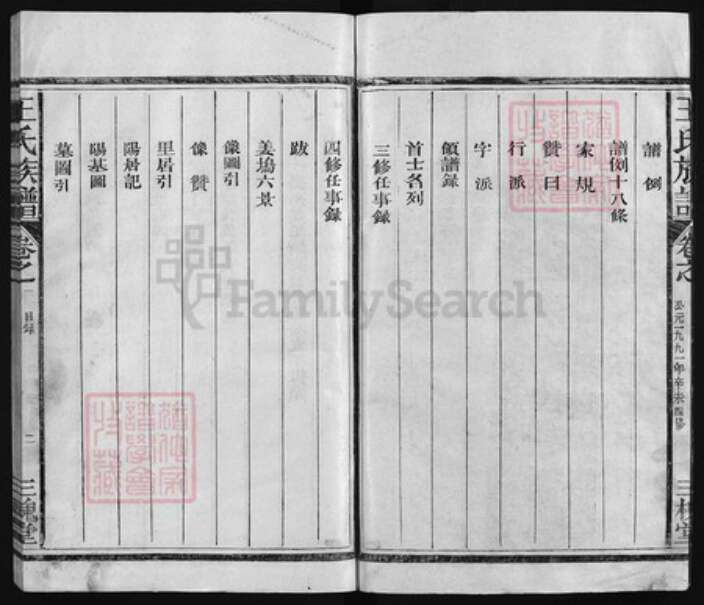 王氏族譜
卷之一
公元一九九一年辛未四修
三槐堂
譜例
譜例十八條
家規
贊曰
行派
字派
領譜錄
首士名列
三修任事錄
四修任事錄
跋
姜塢六景
像圖引
像贊
里居引
陽居記
陽基圖
墓圖引
王氏族譜
卷之一
目錄
二
三槐堂
FamilySearch